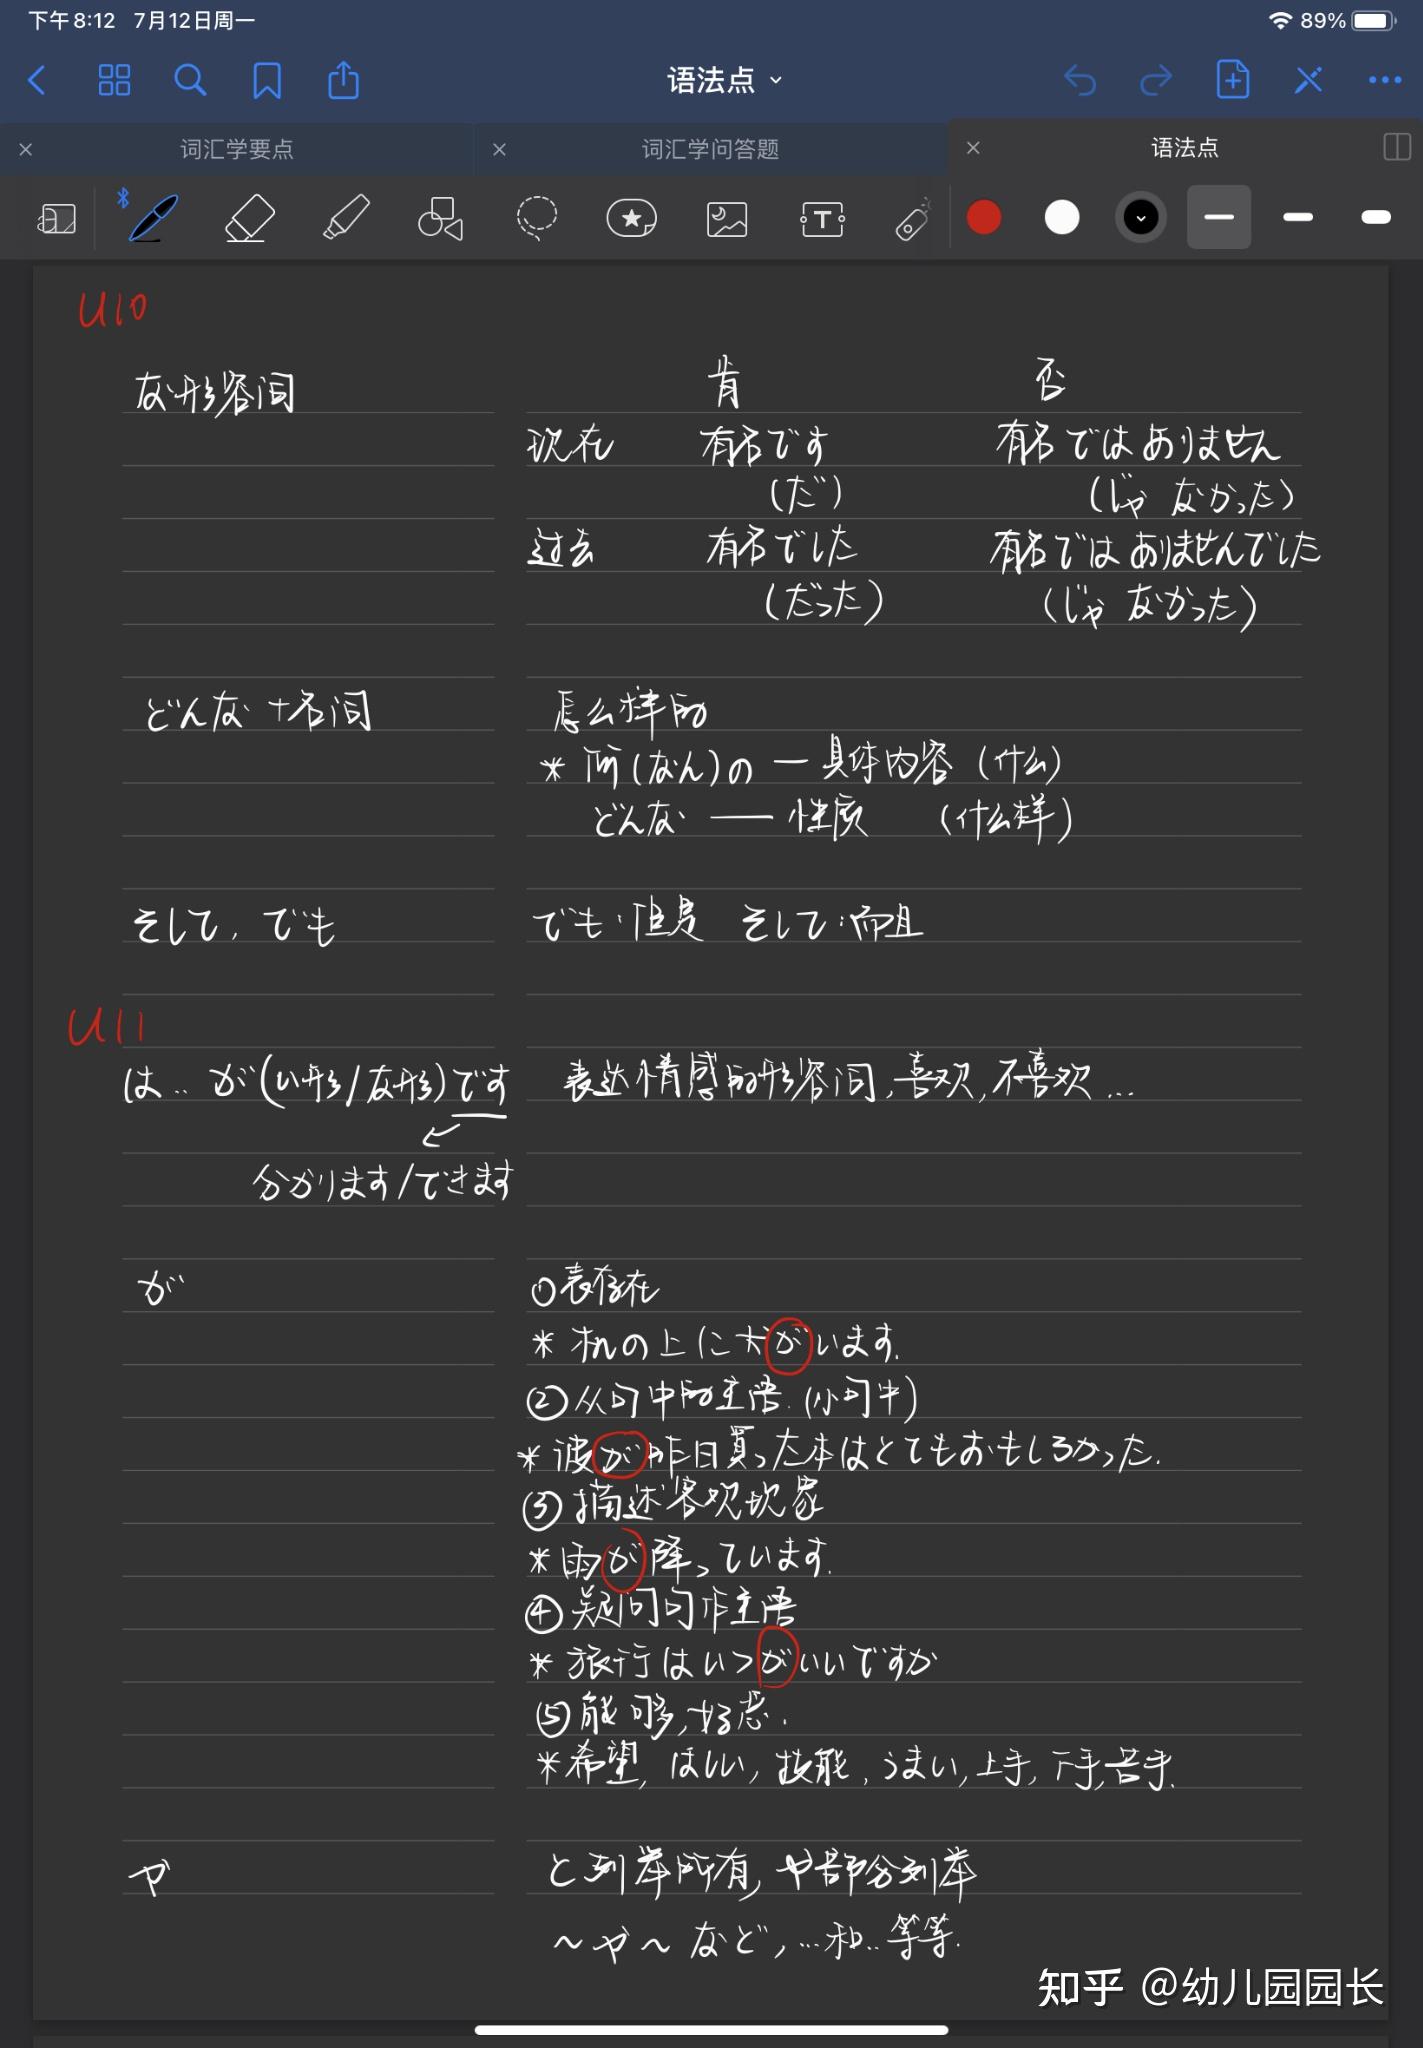 下午8:12 7月12日周一 89%
语法点
词汇学要点 词汇学问答题 语法点
U10
な形容词 肯 否
现在 有名です 有名ではありません
(だ) (じゃなかった)
过去 有名でした 有名ではありませんでした
(だった) (じゃなかった)
どんな+名词 怎么样的
* 何(なん)の — 具体内容 (什么)
どんな — 性质 (什么样)
そして, でも でも:但是 そして:而且
U11
は.. が(い形/な形)です 表达情感的形容词,喜欢,不喜欢...
分かります/できます
が ①表存在
* 机の上に犬がいます.
②从句中的主语.(小句中)
* 彼が昨日買った本はとてもおもしろかった.
③描述客观现象
* 雨が降っています.
④疑问句作主语
* 旅行はいつがいいですか
⑤能够,好恶.
* 希望, ほしい, 技能, うまい, 上手, 下手, 苦手.
や と列举所有, や部分列举
~や~など, ...和..等等.
知乎 @幼儿园园长